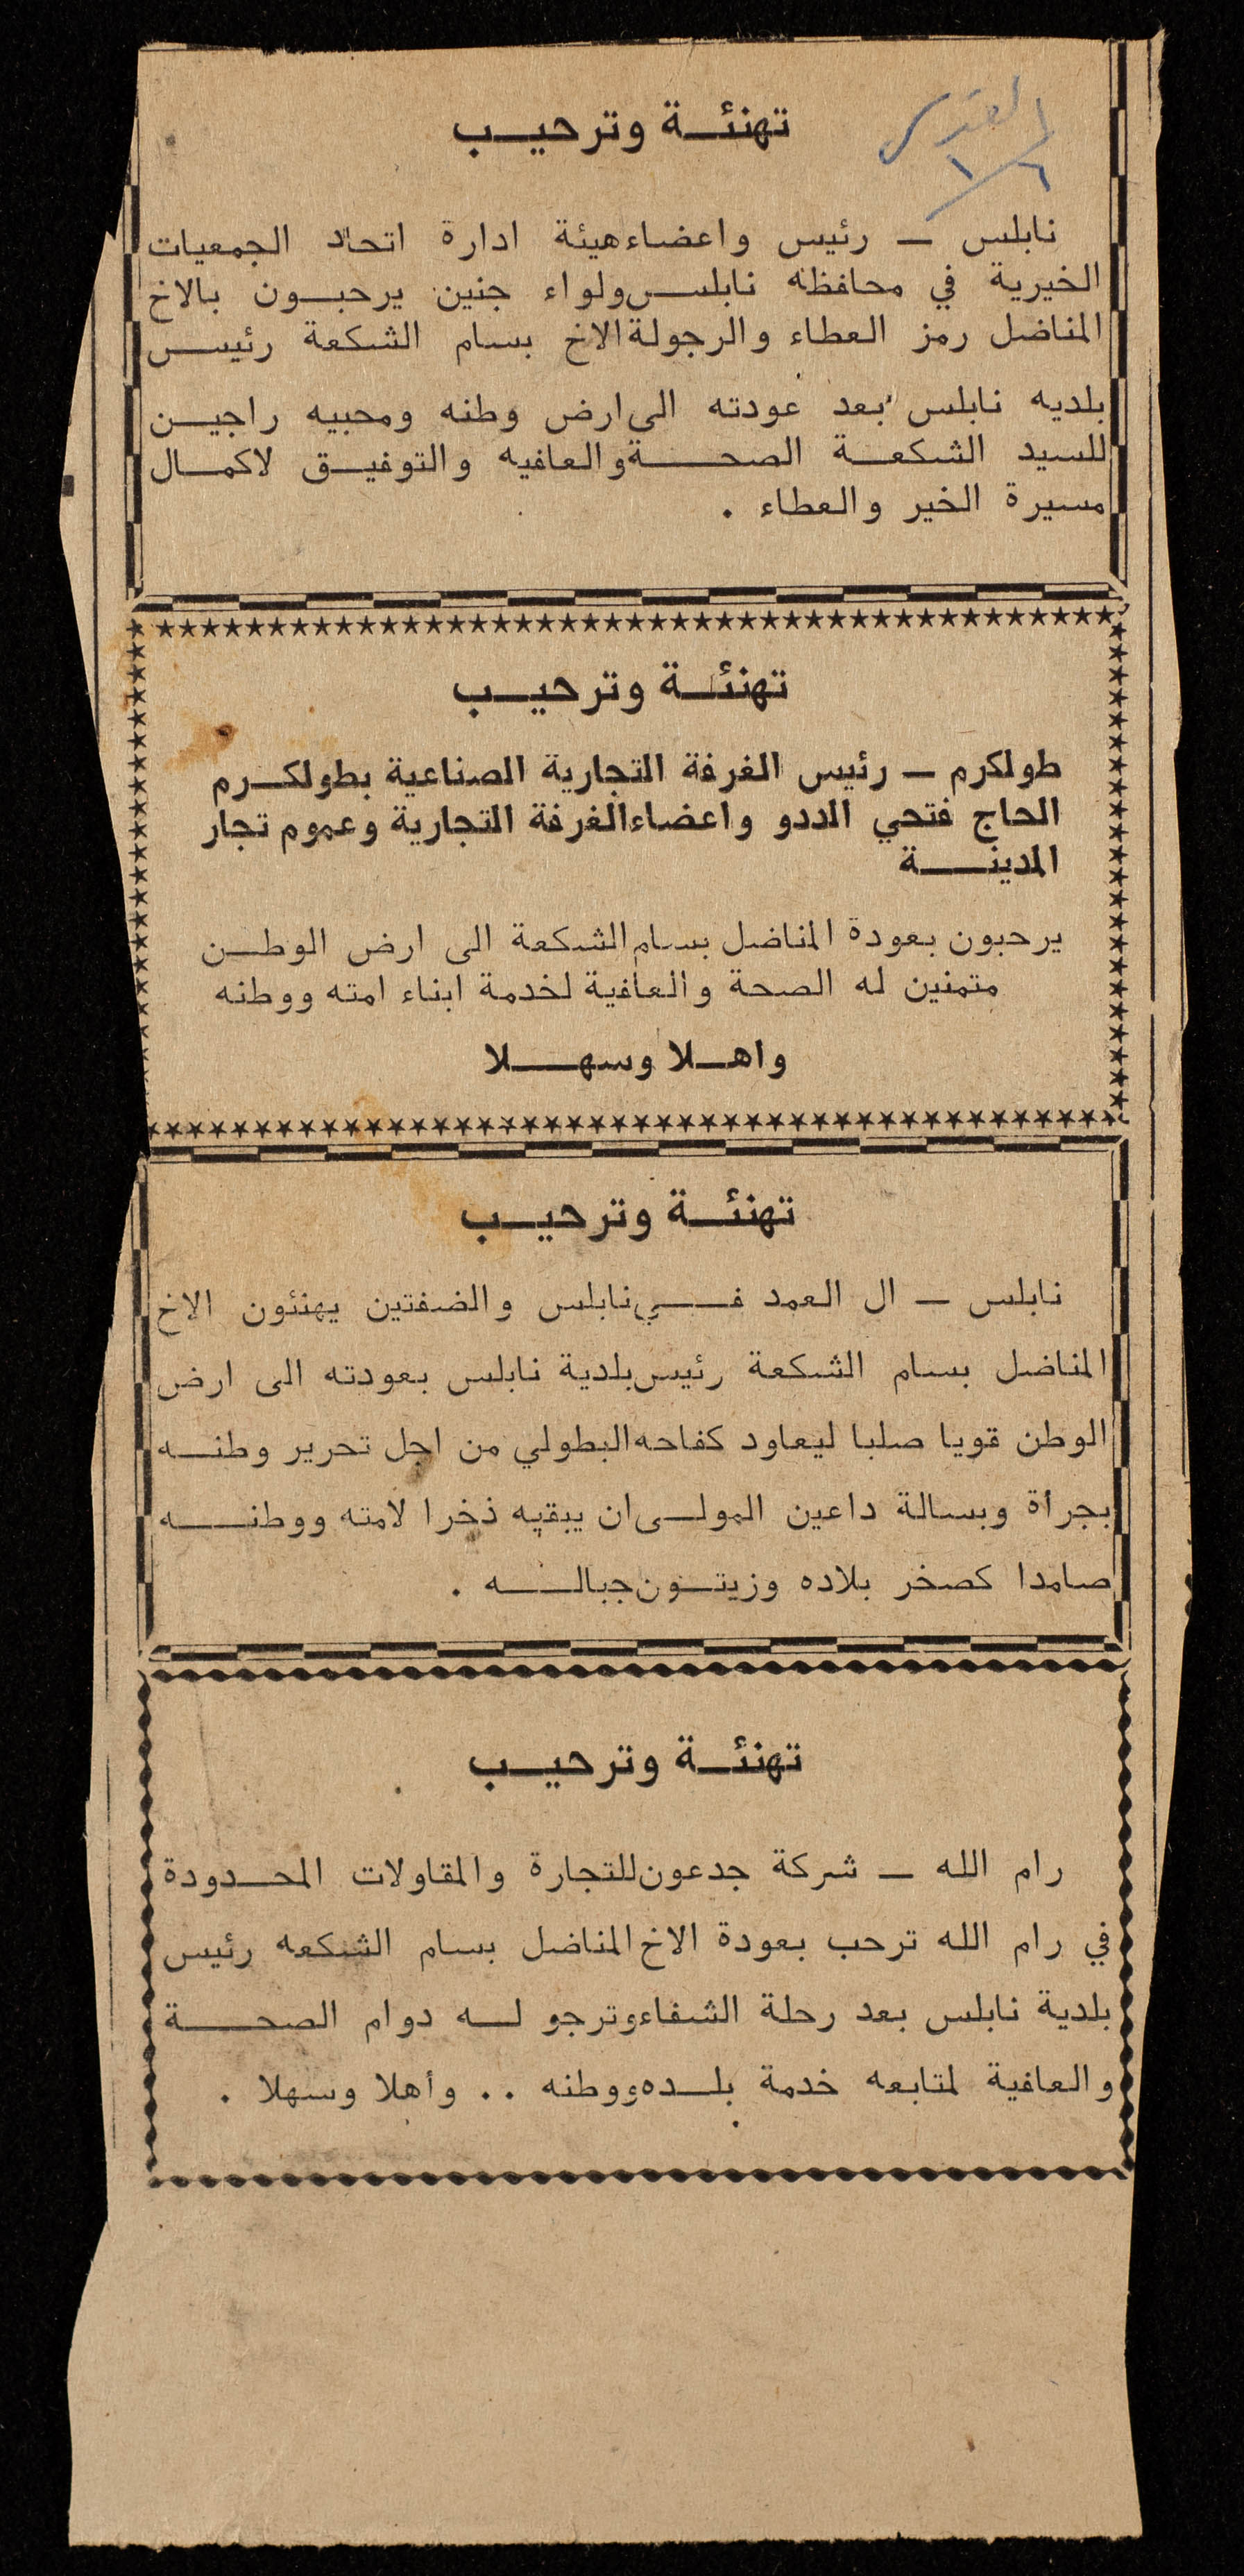 القدس
١/٦
تهنئة وترحيب
نابلس — رئيس واعضاء هيئة ادارة اتحاد الجمعيات
الخيرية في محافظه نابلس ولواء جنين يرحبون بالاخ
المناضل رمز العطاء والرجولة الاخ بسام الشكعة رئيس
بلديه نابلس بعد عودته الى ارض وطنه ومحبيه راجين
للسيد الشكعة الصحة والعافيه والتوفيق لاكمال
مسيرة الخير والعطاء .
تهنئة وترحيب
طولكرم — رئيس الغرفة التجارية الصناعية بطولكرم
الحاج فتحي الددو واعضاء الغرفة التجارية وعموم تجار
المدينة
يرحبون بعودة المناضل بسام الشكعة الى ارض الوطن
متمنين له الصحة والعافية لخدمة ابناء امته ووطنه
واهلا وسهلا
تهنئة وترحيب
نابلس — ال العمد في نابلس والضفتين يهنئون الاخ
المناضل بسام الشكعة رئيس بلدية نابلس بعودته الى ارض
الوطن قويا صلبا ليعاود كفاحه البطولي من اجل تحرير وطنه
بجرأة وبسالة داعين المولى ان يبقيه ذخرا لامته ووطنه
صامدا كصخر بلاده وزيتون جباله .
تهنئة وترحيب
رام الله — شركة جدعون للتجارة والمقاولات المحدودة
في رام الله ترحب بعودة الاخ المناضل بسام الشكعه رئيس
بلدية نابلس بعد رحلة الشفاء وترجو له دوام الصحة
والعافية لمتابعه خدمة بلده ووطنه .. وأهلا وسهلا .